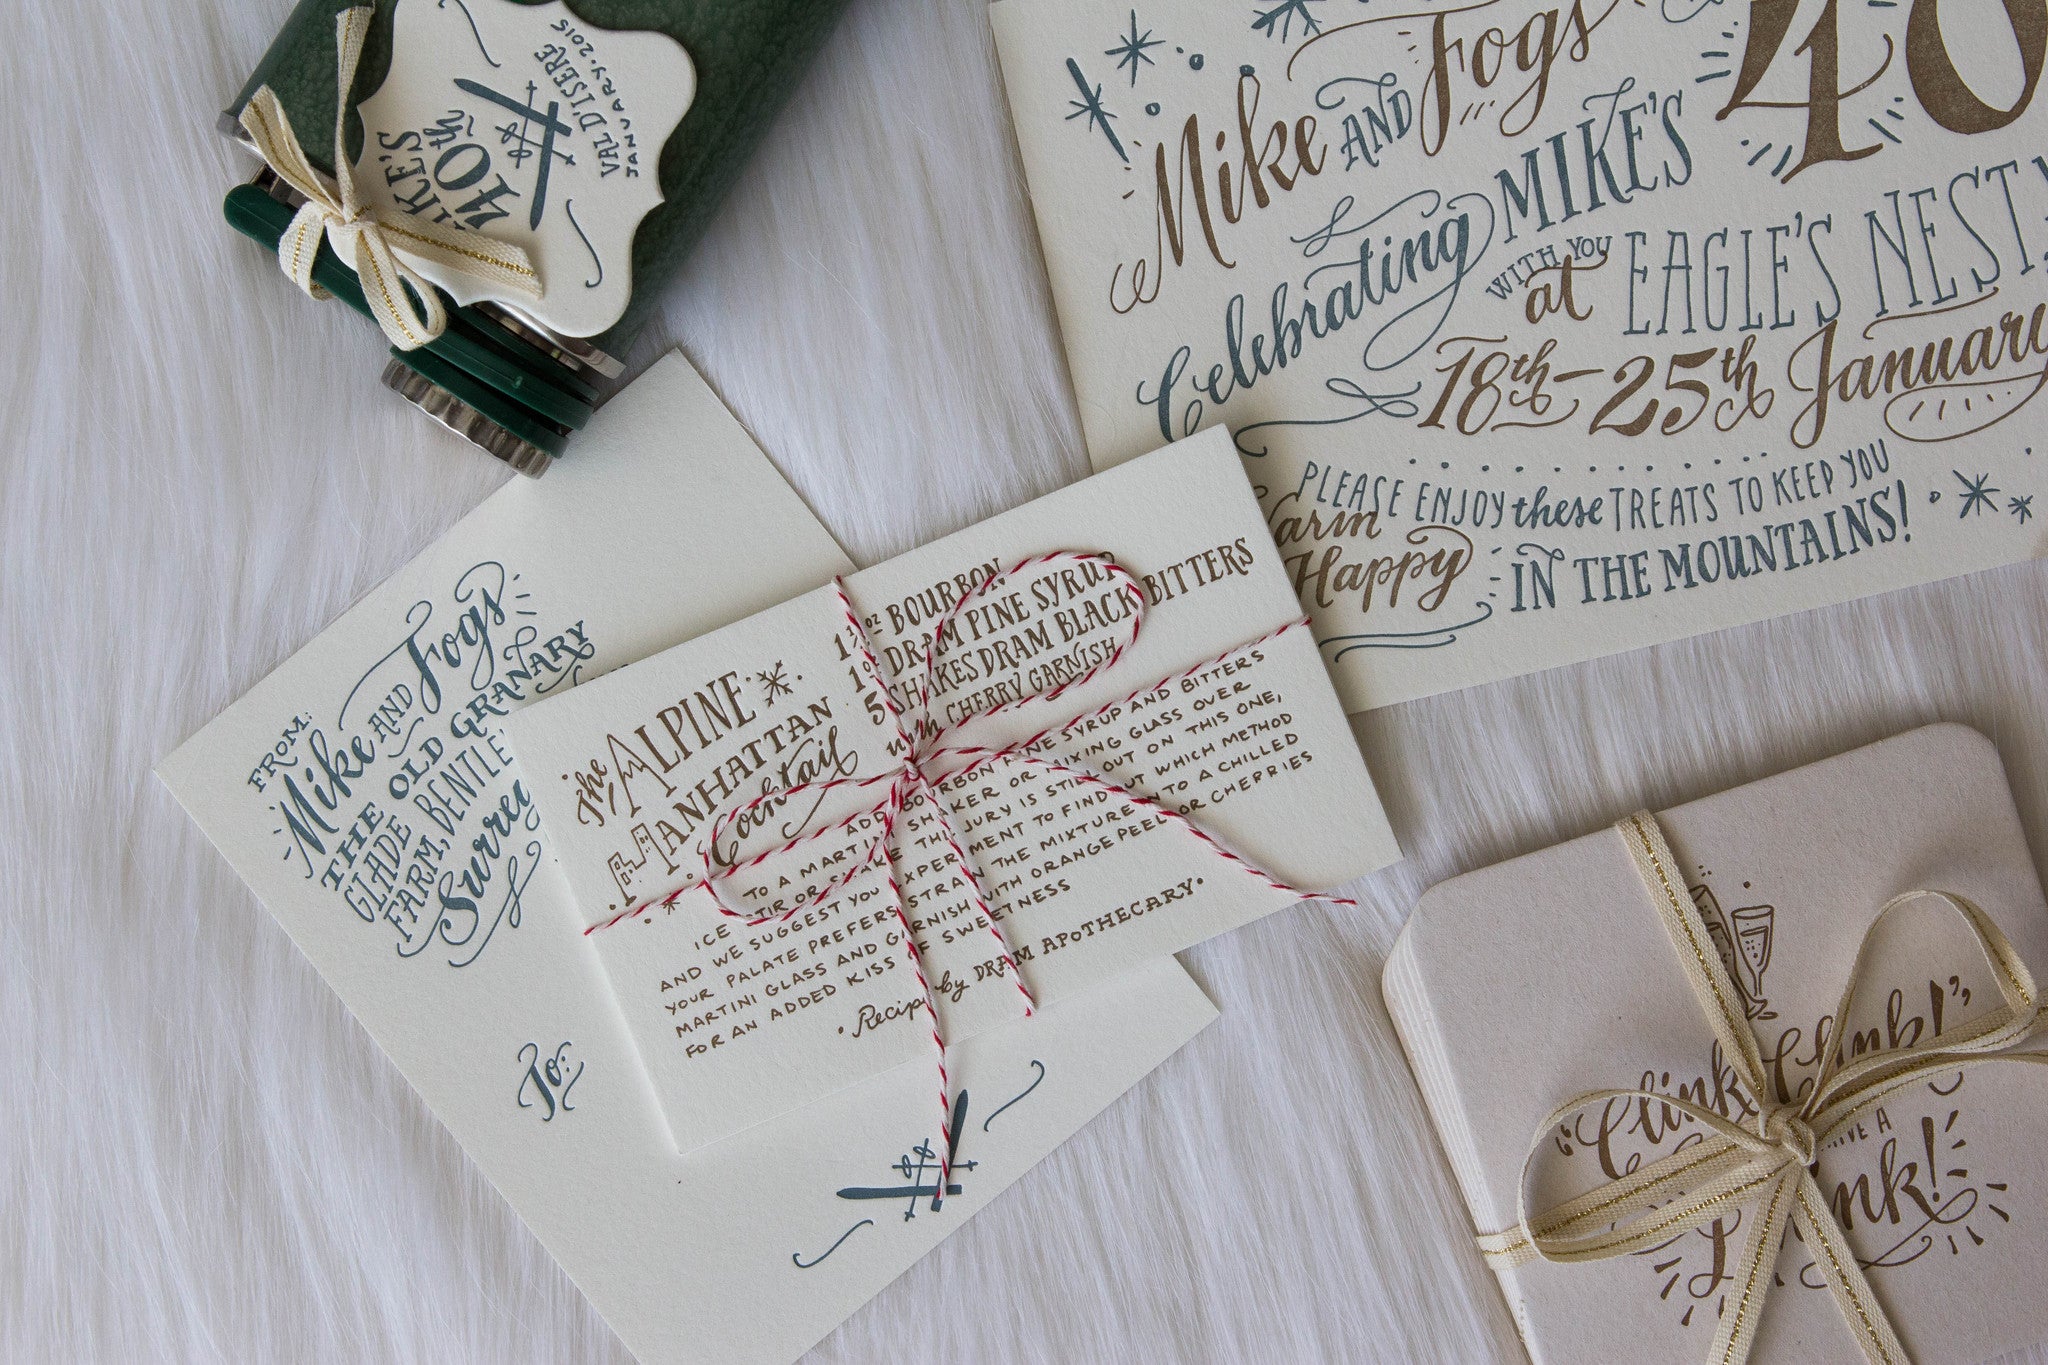 40th
VAL D'ISERE
JANUARY. 2015
Mike AND Fogs
Celebrating MIKE'S 40
WITH YOU
at EAGLE'S NEST
18th-25th January
PLEASE ENJOY these TREATS TO KEEP YOU
Happy IN THE MOUNTAINS!
FROM:
Mike AND Fogs
THE OLD GRANARY
GLADE
FARM,
To:
The ALPINE
MANHATTAN
Cocktail
BOURBON
DRAM PINE SYRUP
5 SHAKES DRAM BLACK BITTERS
with CHERRY GARNISH
ADD BOURBON PINE SYRUP AND BITTERS
TO A MARTINI SHAKER OR MIXING GLASS OVER
ICE STIR OR SHAKE THE JURY IS STILL OUT ON THIS ONE,
AND WE SUGGEST YOU EXPERIMENT TO FIND OUT WHICH METHOD
YOUR PALATE PREFERS STRAIN THE MIXTURE INTO A CHILLED
MARTINI GLASS AND GARNISH WITH ORANGE PEEL OR CHERRIES
FOR AN ADDED KISS OF SWEETNESS
• Recipe by DRAM APOTHECARY. •
"Clink, Clink!",
A